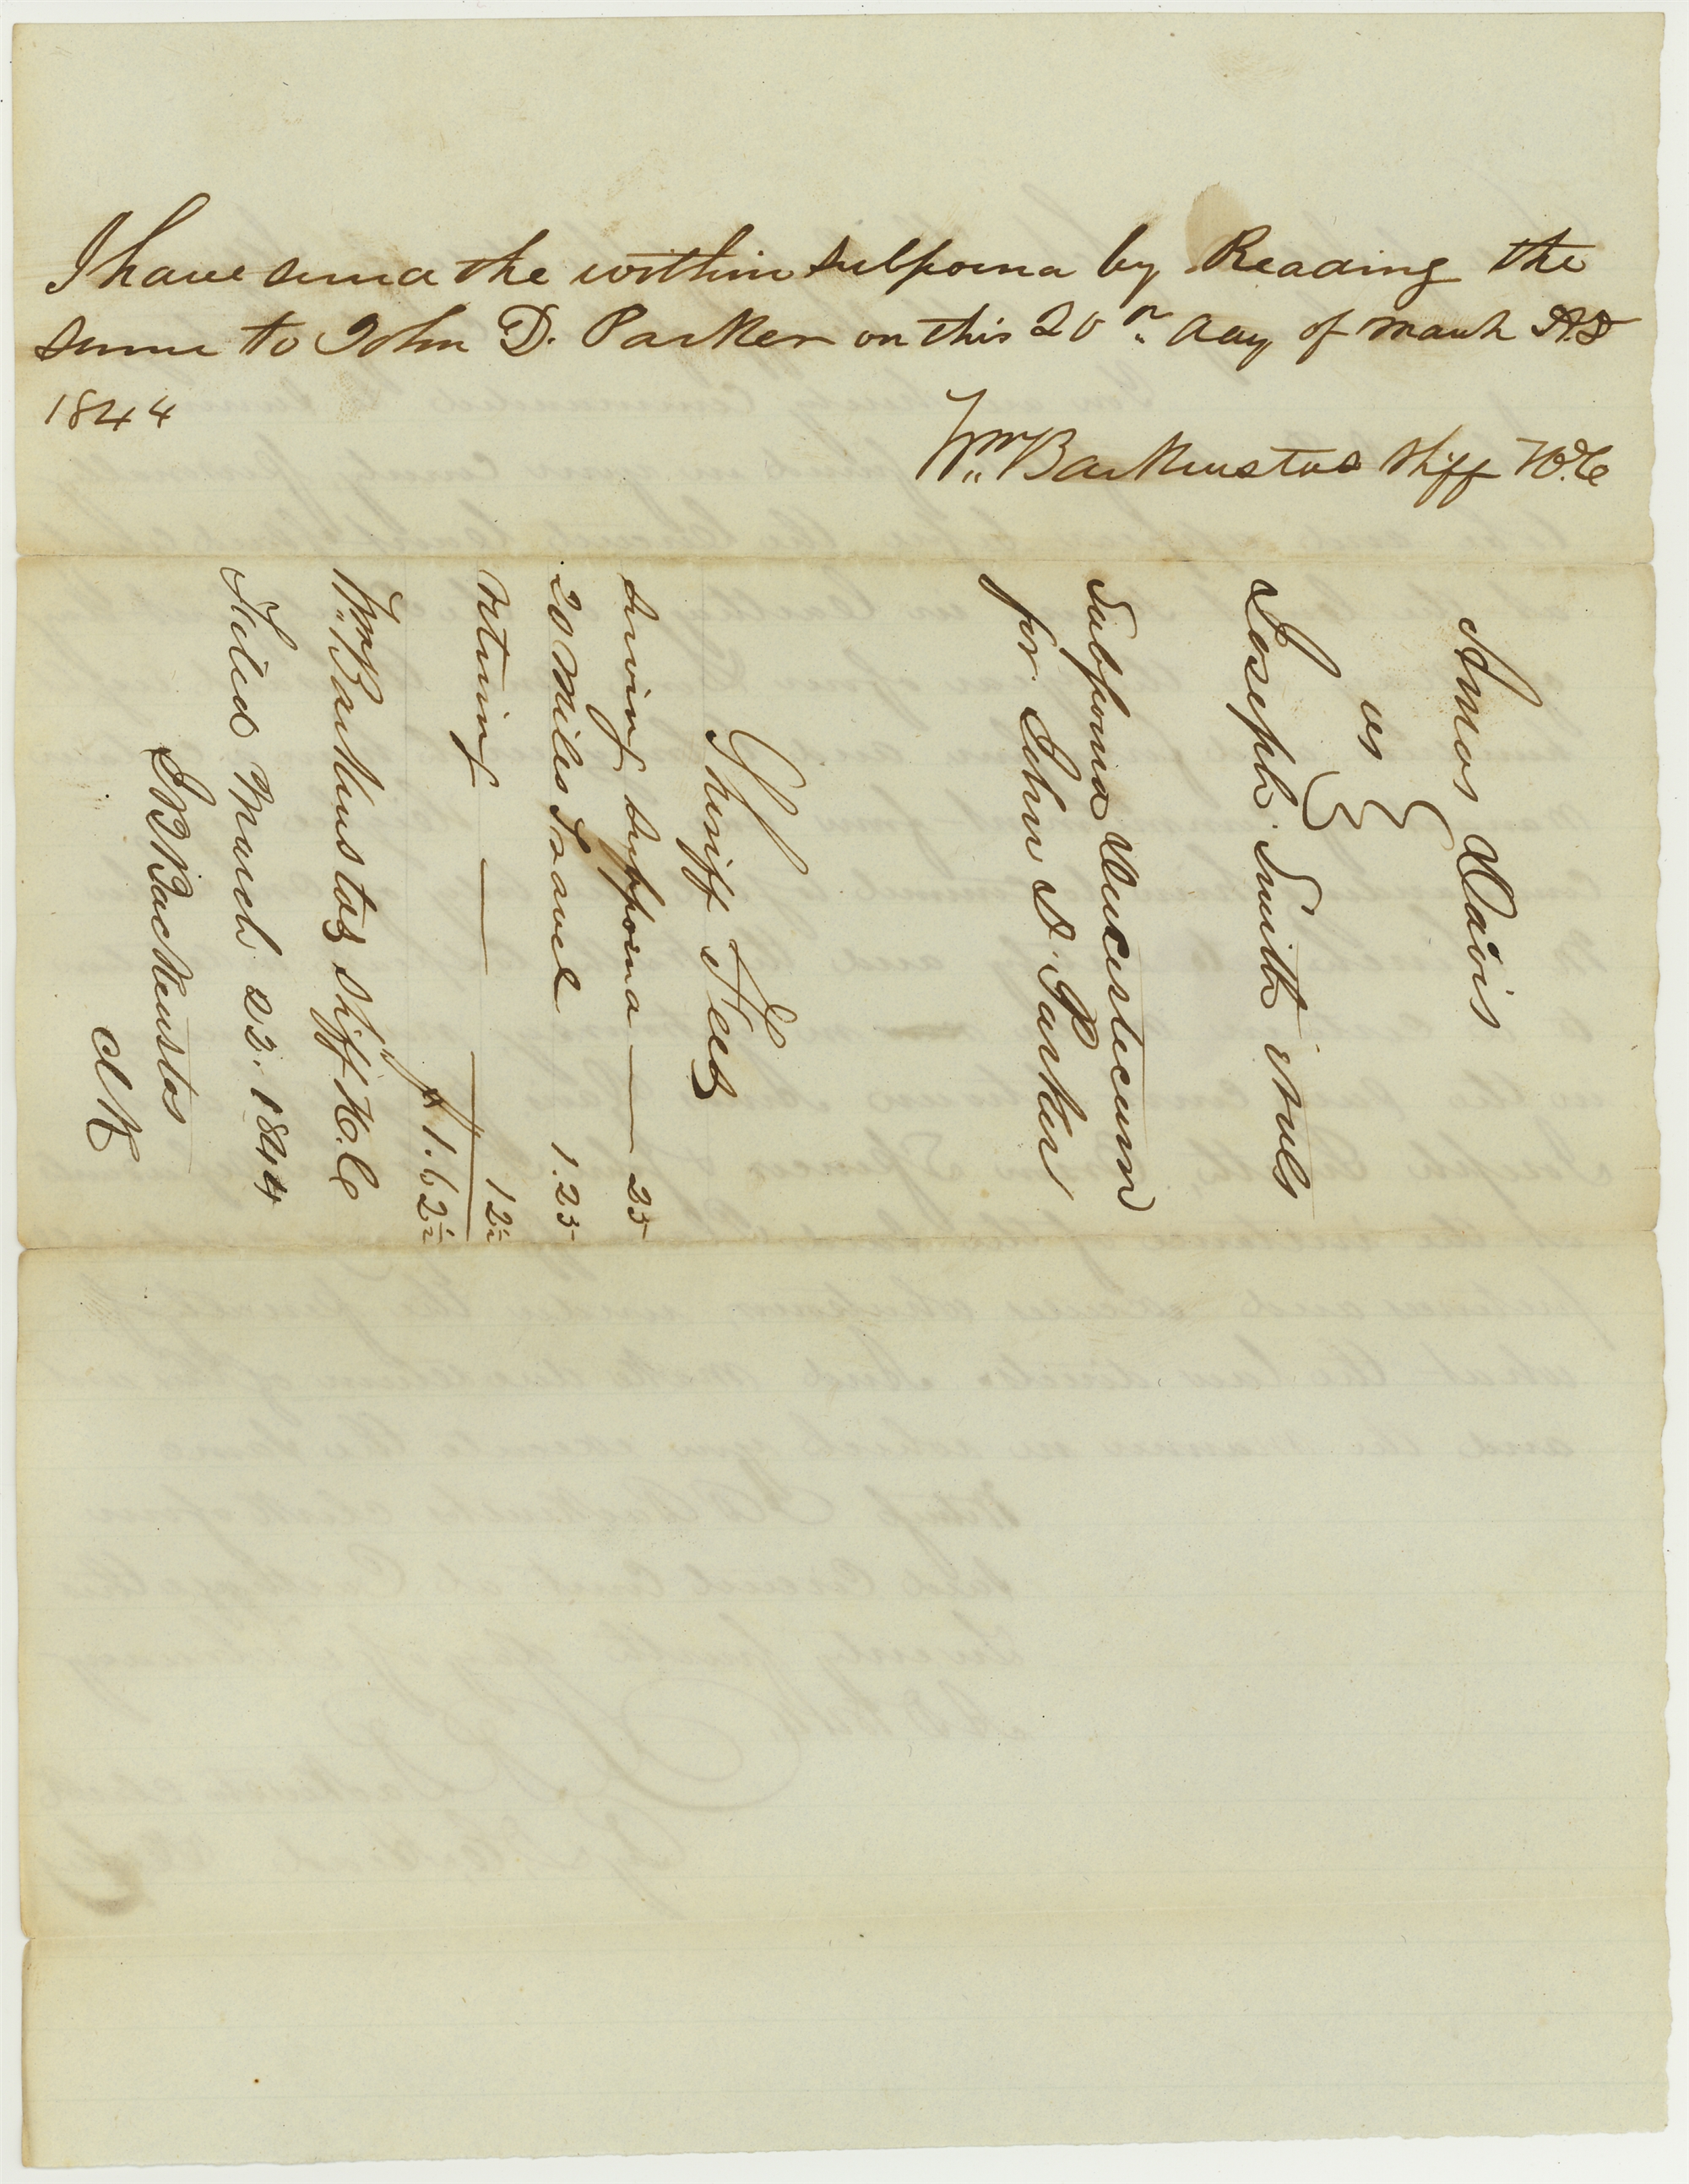 I have servd the within subpoena by Reading the
same to John D. Parker on this 20th day of March A.D
1844
Wm. Backenstos Shff H.C
Amos Davis
vs
Joseph Smith
Subpoena Ducestecum
for John D. Parker
Sheriff Fees
serving subpoena — 25
20 Miles Travel 1.25
returning — 12½
$1.62½
Wm. Backenstos Shff H.C
Filed March 23. 1844
J B Backenstos
Clk